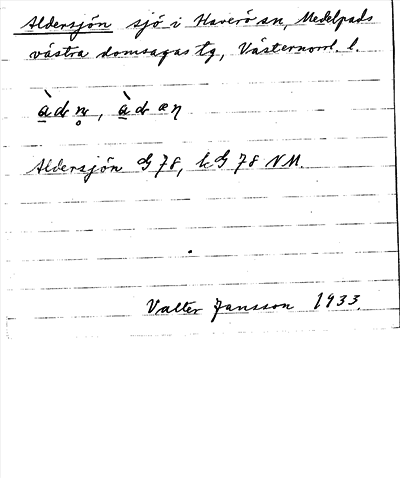 Aldersjön sjö i Haverö sn, Medelpads
västra domsagas tg, Västernorrl. l.
àdn̥, àdæŋ
Aldersjön G 78, kG 78 NM.
Valter Jansson 1933.